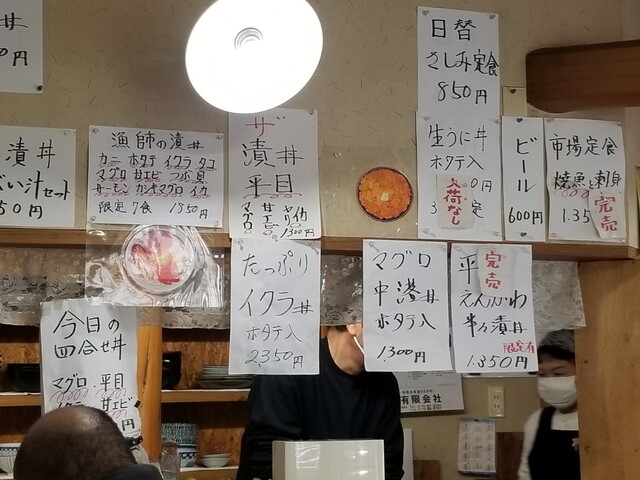 丼
円
漬丼
い汁セット
50円
漁師の漬丼
カニ ホタテ イクラ タコ
マグロ 甘エビ つぶ貝
サーモン イカ
限定7食 1350円
ザ
漬丼
平目
マグロ
甘エビ
1300円
日替
さしみ定食
850円
生うに丼
ホタテ入
入荷なし
定
ビール
600円
市場定食
焼魚と刺身
1.35
完売
たっぷり
イクラ丼
ホタテ入
2,350円
マグロ
中港丼
ホタテ入
1300円
平
完売
えんがわ
半々漬丼
限定有
1.350円
今日の
四合せ丼
マグロ・平目
甘エビ
円
有限会社